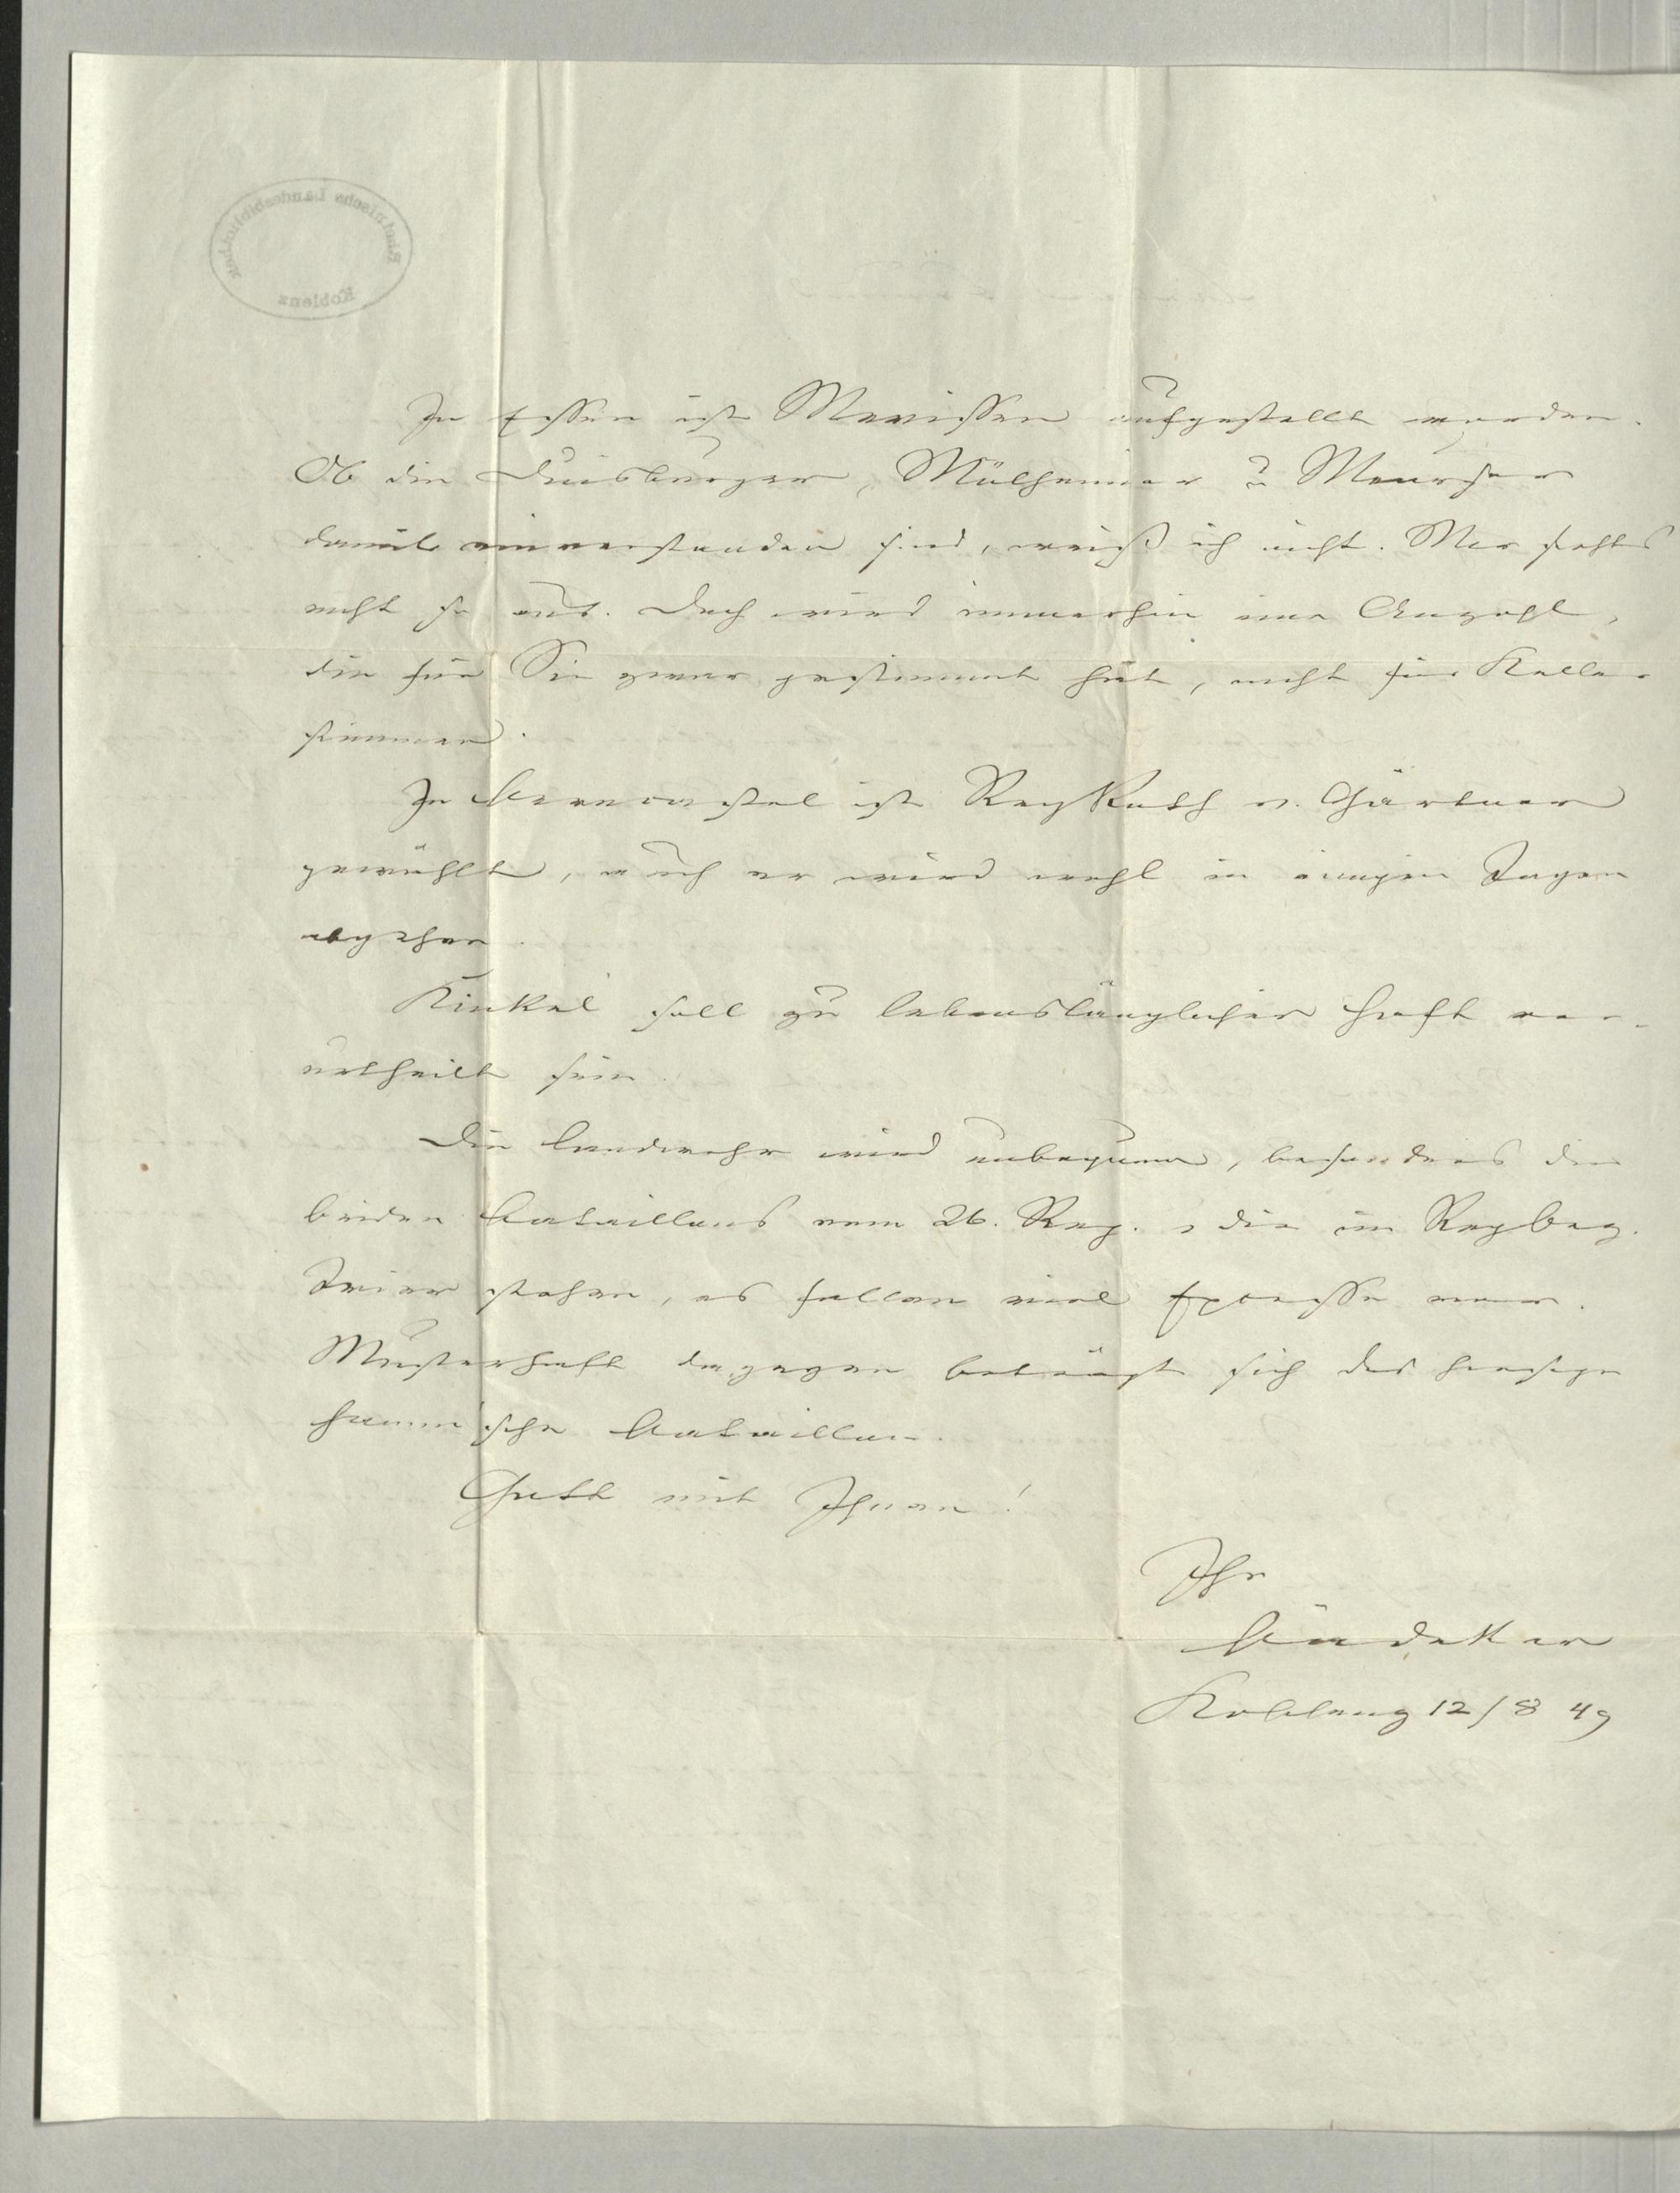 Rheinische Landesbibliothek
Koblenz
In Essen ist Mevissen aufgestellt worden.
Ob die Duisburger, Mülheimer u Meurser
damit einverstanden sind, weiß ich nicht. Mir siehts
nicht so aus. Doch wird immerhin eine Anzahl,
die für Sie zwar gestimmt hat, nicht für Keller
stimmen.
In Berncastel ist RegRath v. Gärtner
gewählt, auch er wird wohl in einigen Tagen
abgehen.
Kinkel soll zu lebenslänglicher Haft ver-
urtheilt sein.
Die Landwehr wird unbequem, besonders die
beiden Bataillons vom 26. Reg., die im RegBez.
Trier stehen, es fallen viel Excesse vor.
Musterhaft dagegen beträgt sich das hiesige
Hammsche Bataillon.
Gott mit Ihnen!
Ihr
Bädeker
Koblenz 12/8 49